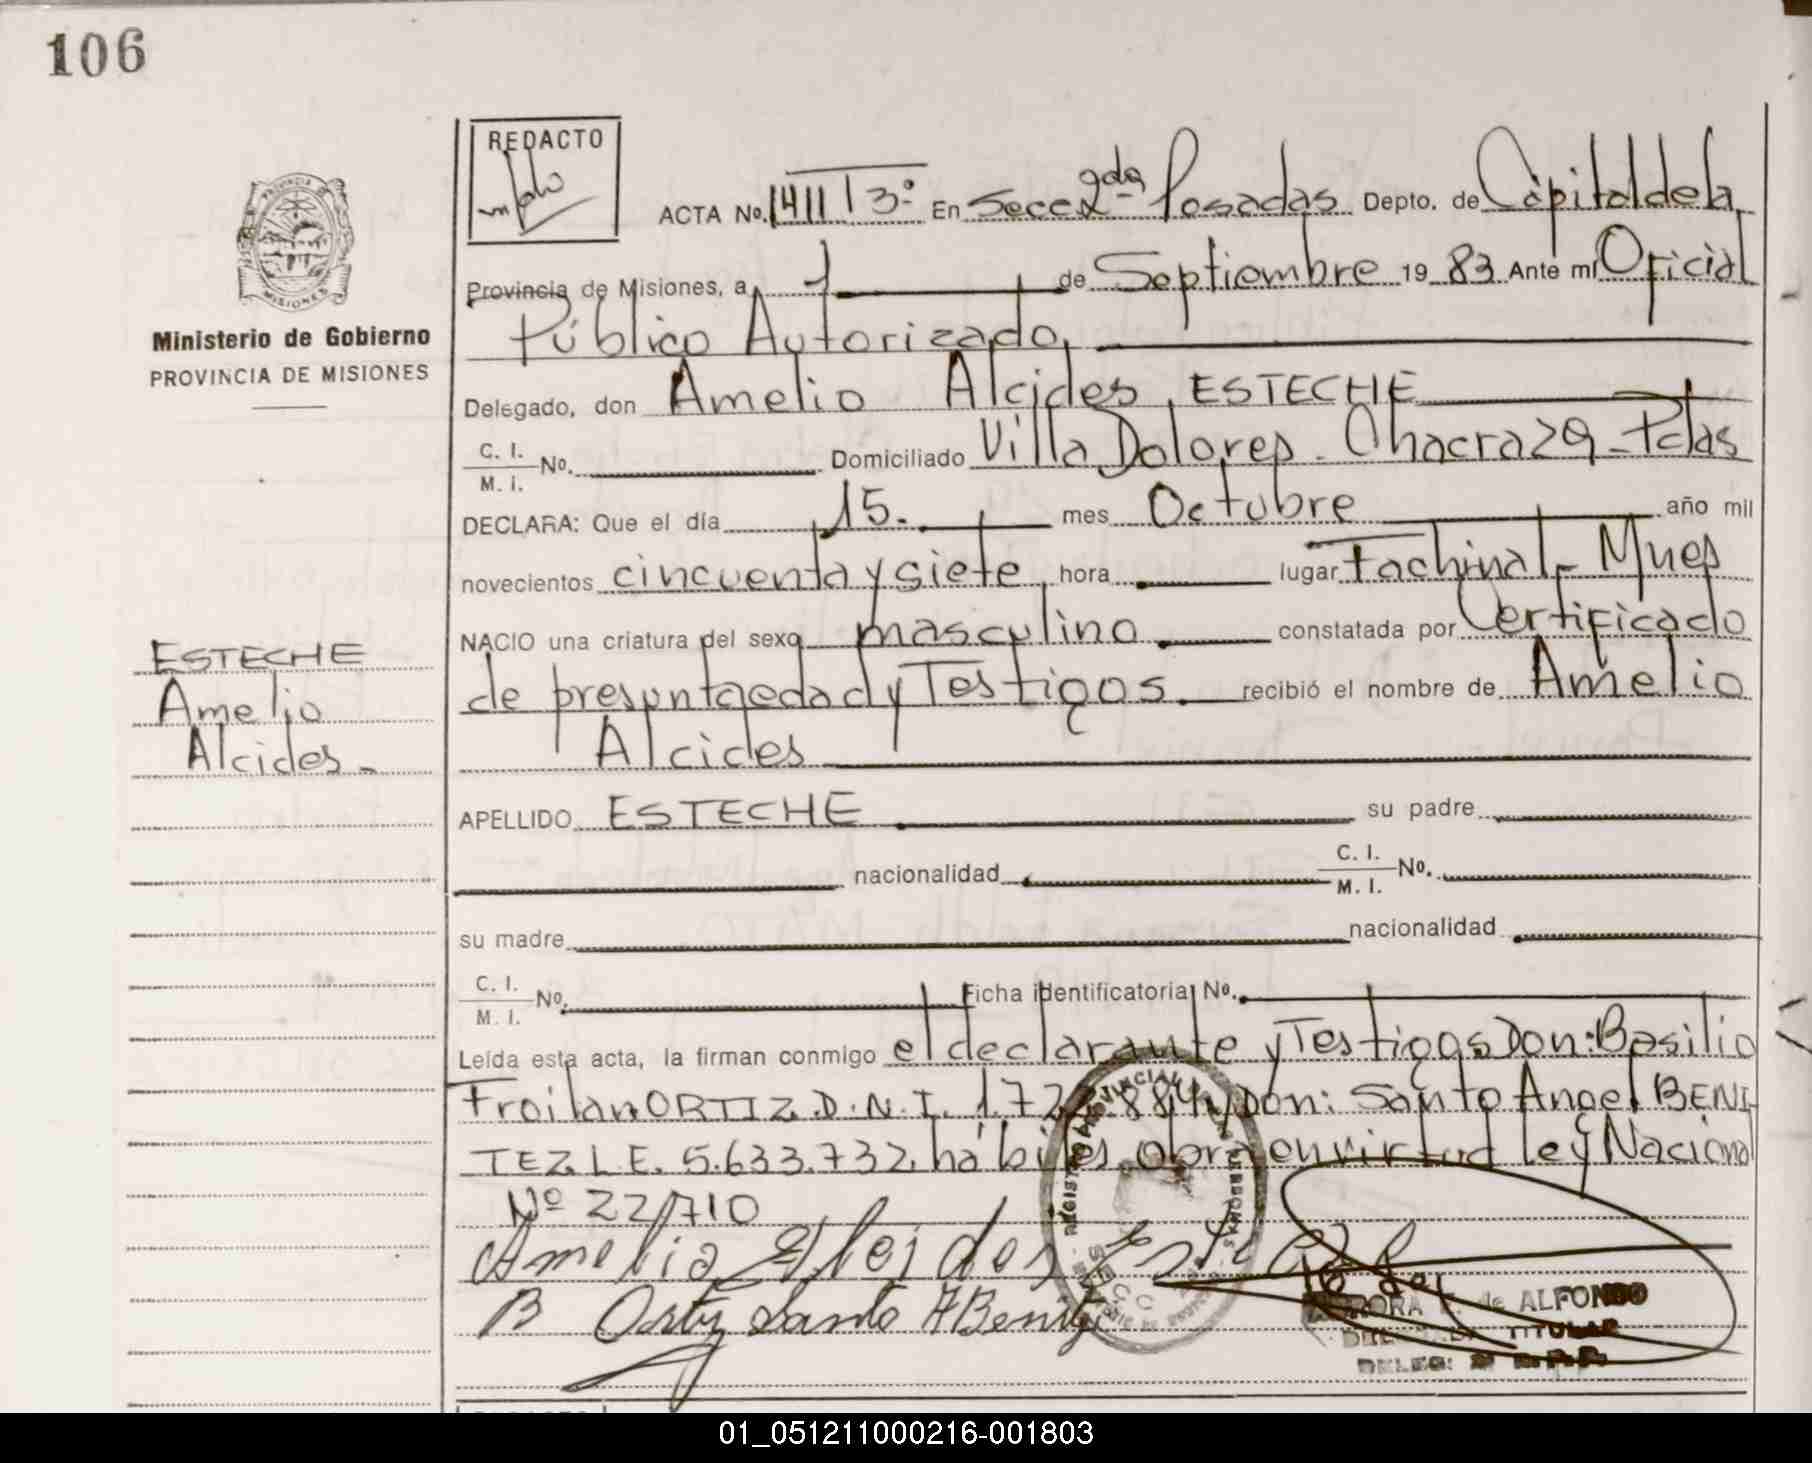 106
REDACTO
ACTA No. 1411 T 3º En Secc 2da Posadas Depto. de Capital de la
Provincia de Misiones, a 7 de Septiembre 19 83 Ante mí Oficial
Público Autorizado
Delegado, don Amelio Alcides ESTECHE
C. I.
M. I. No. Domiciliado Villa Dolores - Chacra 29 - Pdas
DECLARA: Que el día 15. mes Octubre año mil
novecientos cincuenta y siete hora lugar Fachinal - Mnes
NACIO una criatura del sexo masculino constatada por Certificado
de presunta edad y Testigos recibió el nombre de Amelio
Alcides
APELLIDO ESTECHE su padre
nacionalidad C. I.
M. I. No.
su madre nacionalidad
C. I.
M. I. No. Ficha identificatoria No.
Leída esta acta, la firman conmigo el declarante y Testigos Don: Basilio
Froilan ORTIZ D.N.I. 1.722.884 y Don: Santo Angel BENI
TEZ L.E. 5.633.732 hábiles, obra en virtud ley Nacional
Nº 22710
B Ortiz Santo A Benitez
ALFONSO
TITULAR
PROVINCIA DE
MISIONES
Ministerio de Gobierno
PROVINCIA DE MISIONES
ESTECHE
Amelio
Alcides -
01_051211000216-001803